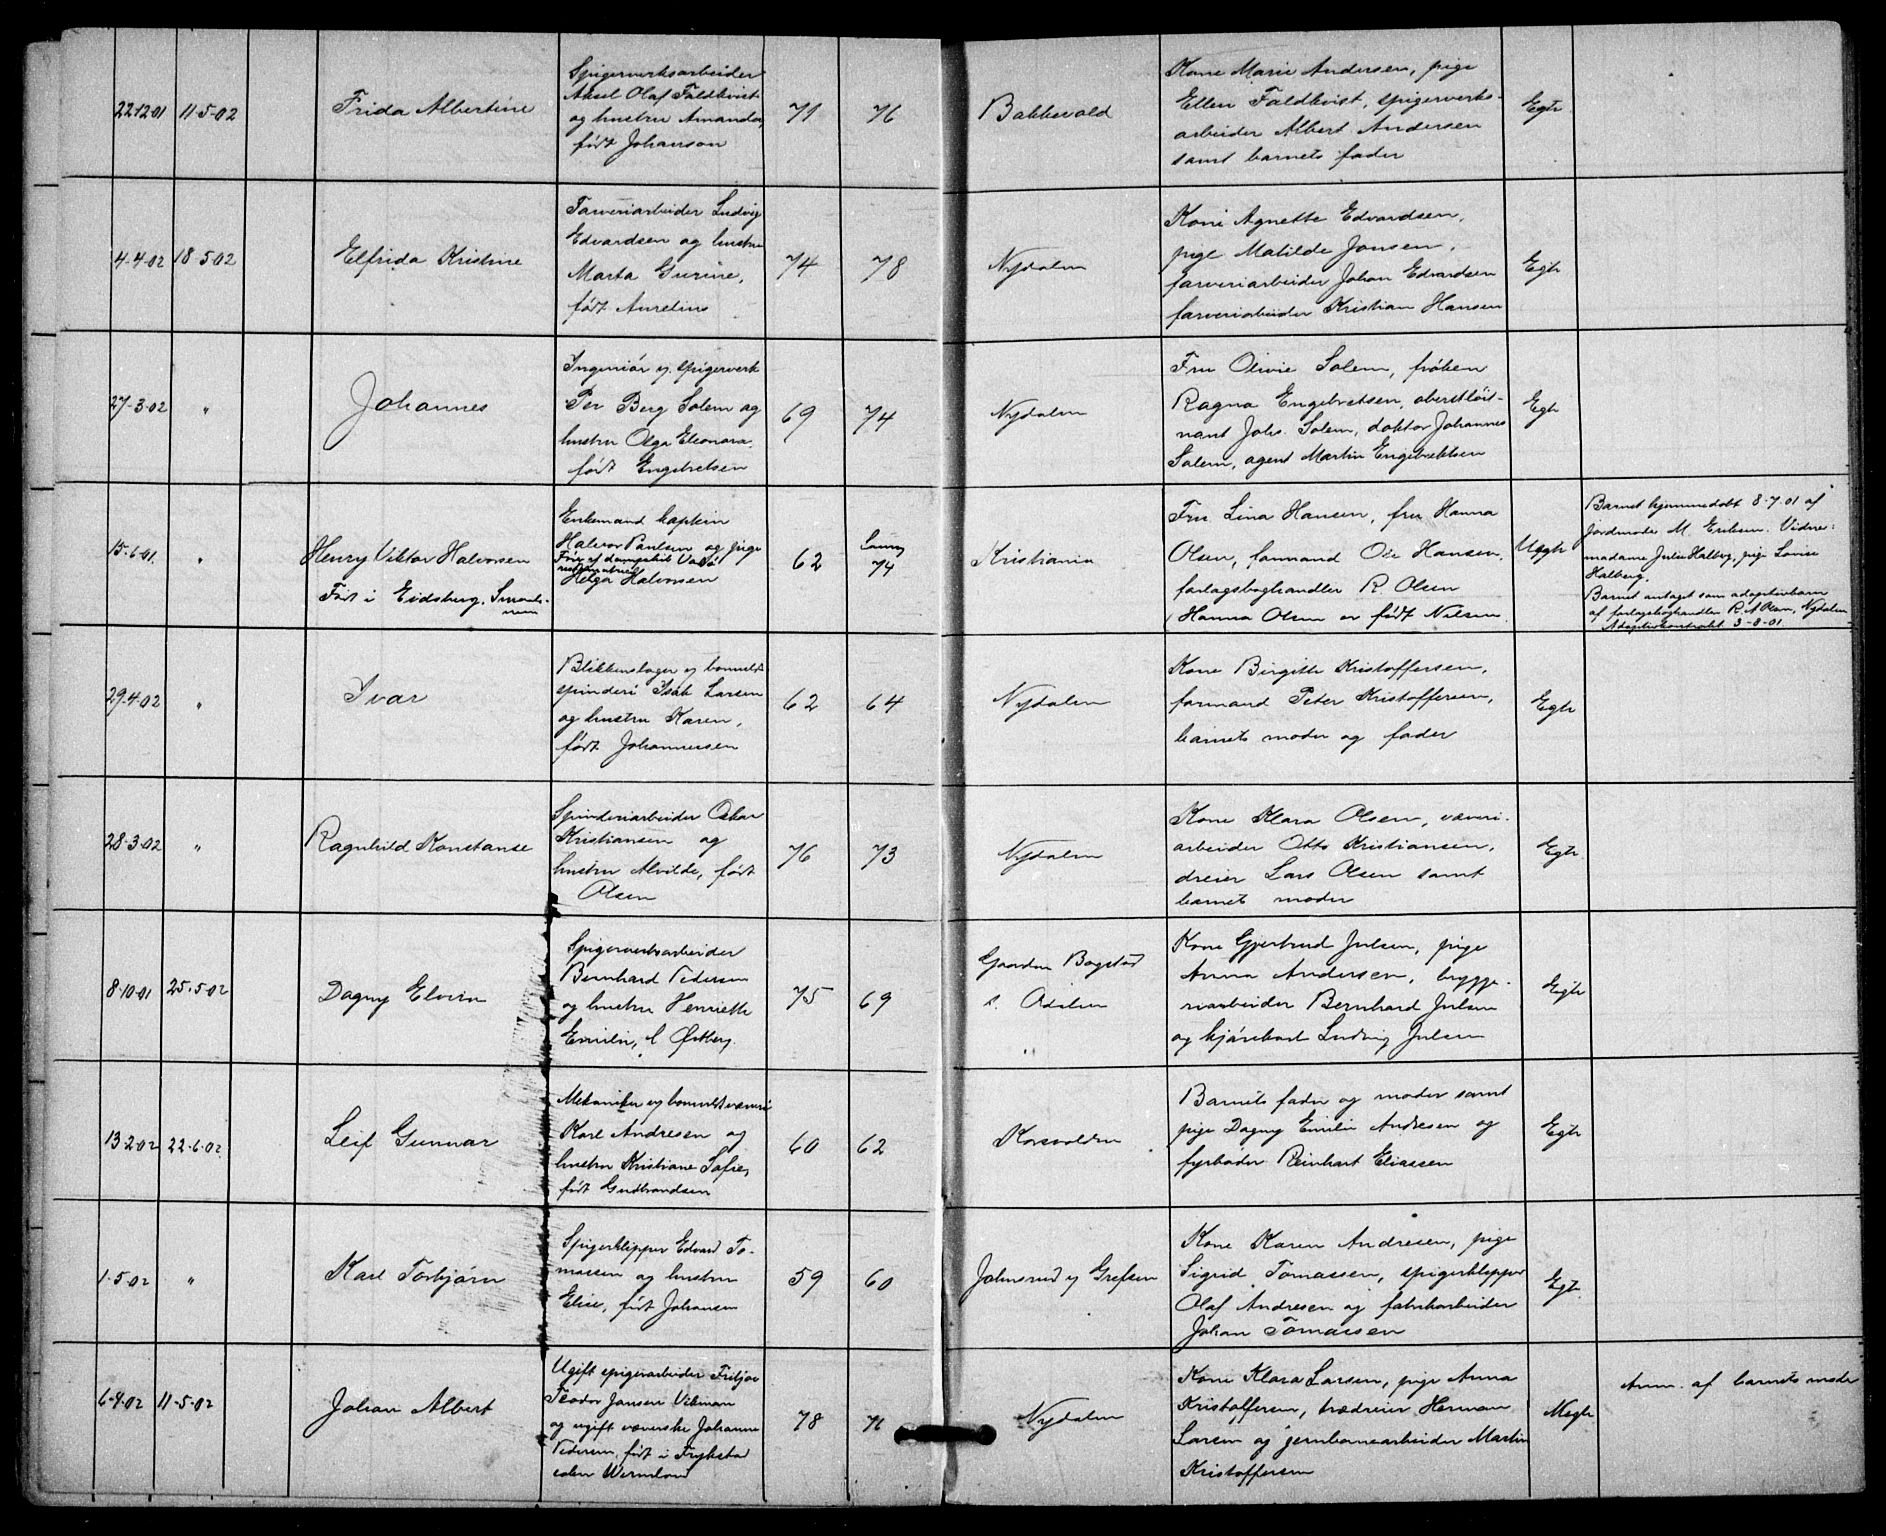 22-12-01 11-5-02
Frida Albertine
Spigerverksarbeider
Aksel Olaf Faldkvist
og hustru Amanda,
født Johanson
71 76
Bakkevold
Kone Marie Andersen, pige
Ellen Faldkvist, spigerverks-
arbeider Albert Andersen
samt barnets fader
Egte
4-4-02 18-5-02
Elfrida Kristine
Farveriarbeider Ludvig
Edvardsen og hustru
Marta Gurine,
født Aurelius
74 78
Nydalen
Kone Agnette Edvardsen,
pige Matilde Jansen,
farveriarbeider Johan Edvardsen
farveriarbeider Kristian Hansen
Egte
27-3-02 "
Johannes
Ingeniör v. spigerverk
Per Berg Solem og
hustru Olga Eleonora,
født Engebretsen
69 74
Nydalen
Fru Olivie Solem, fröken
Ragna Engebretsen, oberstlöit-
nant Johs. Solem, doktor Johannes
Solem, agent Martin Engebretsen
Egte
15-6-01 "
Henry Viktor Halvorsen
Født i Eidsberg, Smaale-
nene
Enkemand kaptein
Halvor Paulsen og pige
Helga Halvorsen
62 74
Kristiania
Fru Lina Hansen, fru Hanna
Olsen, formand Ole Hansen,
forlagsboghandler R Olsen
(Hanna Olsen er født Nilsen
Uegte
Barnet hjemmedøbt 8-7-01 af
jordmoder M Eriksen. Vidner:
madame Julie Halberg, pige Lovise
Halberg.
Barnet antaget som adoptivbarn
af forlagsboghandler R. A Olsen, Nydalen
Adoptivkontrakt 3-8-01.
29-4-02 "
Ivar
Blikkenslager v bomulds
spinderi Isak Larsen
og hustru Karen,
født Johannesen
62 64
Nydalen
Kone Birgitte Kristoffersen,
formand Peter Kristoffersen,
barnets moder og fader
Egte
28-3-02 "
Ragnhild Konstanse
Spinderiarbeider Oskar
Kristiansen og
hustru Alvilde, født
Olsen
76 73
Nydalen
Kone Klara Olsen, væveri-
arbeider Otto Kristiansen,
dreier Lars Olsen samt
barnets moder
Egte
8-10-01 25-5-02
Dagny Elvira
Spigerverksarbeider
Bernhard Pedersen
og hustru Henriette
Emilie, f Østberg.
75 69
Gaarden Bogstad
s. Odalen
Kone Gjertrud Julsen, pige
Anna Andersen, brygge-
riarbeider Bernhard Julsen
og kjörekarl Ludvig Julsen
Egte
13-2-02 22-6-02
Leif Gunnar
Mekaniker v bomuldsvæveri
Karl Andresen og
hustru Kristiane Sofie,
født Gudbrandsen
60 62
Korsvolden
Barnets fader og moder samt
pige Dagny Emilie Andresen og
fyrböder Reinhart Eliassen
Egte
1-5-02 "
Karl Torbjørn
Spigerklipper Edvard To-
massen og hustru
Elise, født Johansen
59 60
Johnsrud v Grefsen
Kone Karen Andresen, pige
Sigrid Tomassen, spigerklipper
Olaf Andresen og fabrikarbeider
Johan Tomassen
Egte
6-4-02 11-5-02
Johan Albert
Ugift spigerarbeider Fritjov
Teodor Jansen Vikman
og ugift væverske Johanne
Pedersen, født i Fryksta
Wermland
78 71
Nydalen
Kone Klara Larsen, pige Anna
Kristoffersen, trædreier Herman
Larsen og jernbanearbeider Martin
Kristoffersen
Uegte
Anm. af barnets moder